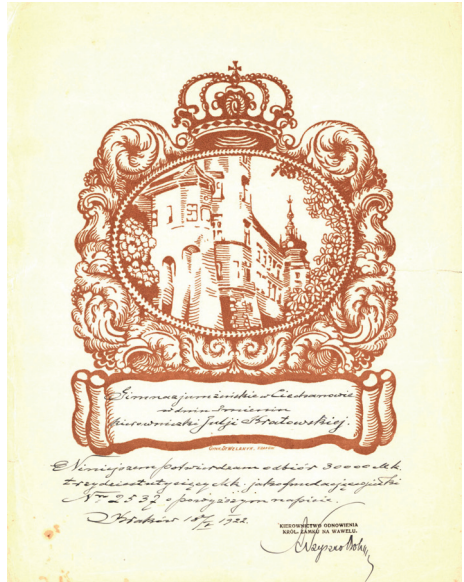 Gimnazjum żeńskie w Ciechanowie
w dniu Imienin
kierowniczki Julji Bratkowskiej
Niniejszem potwierdzam odbiór 30000 Mk.
trzydzieści tysięcy Mk. jako fundację cegiełki
Nr 2532 o powyższym napisie.
Kraków 1922.
KIEROWNICTWO ODNOWIENIA
KRÓL. ZAMKU NA WAWELU.